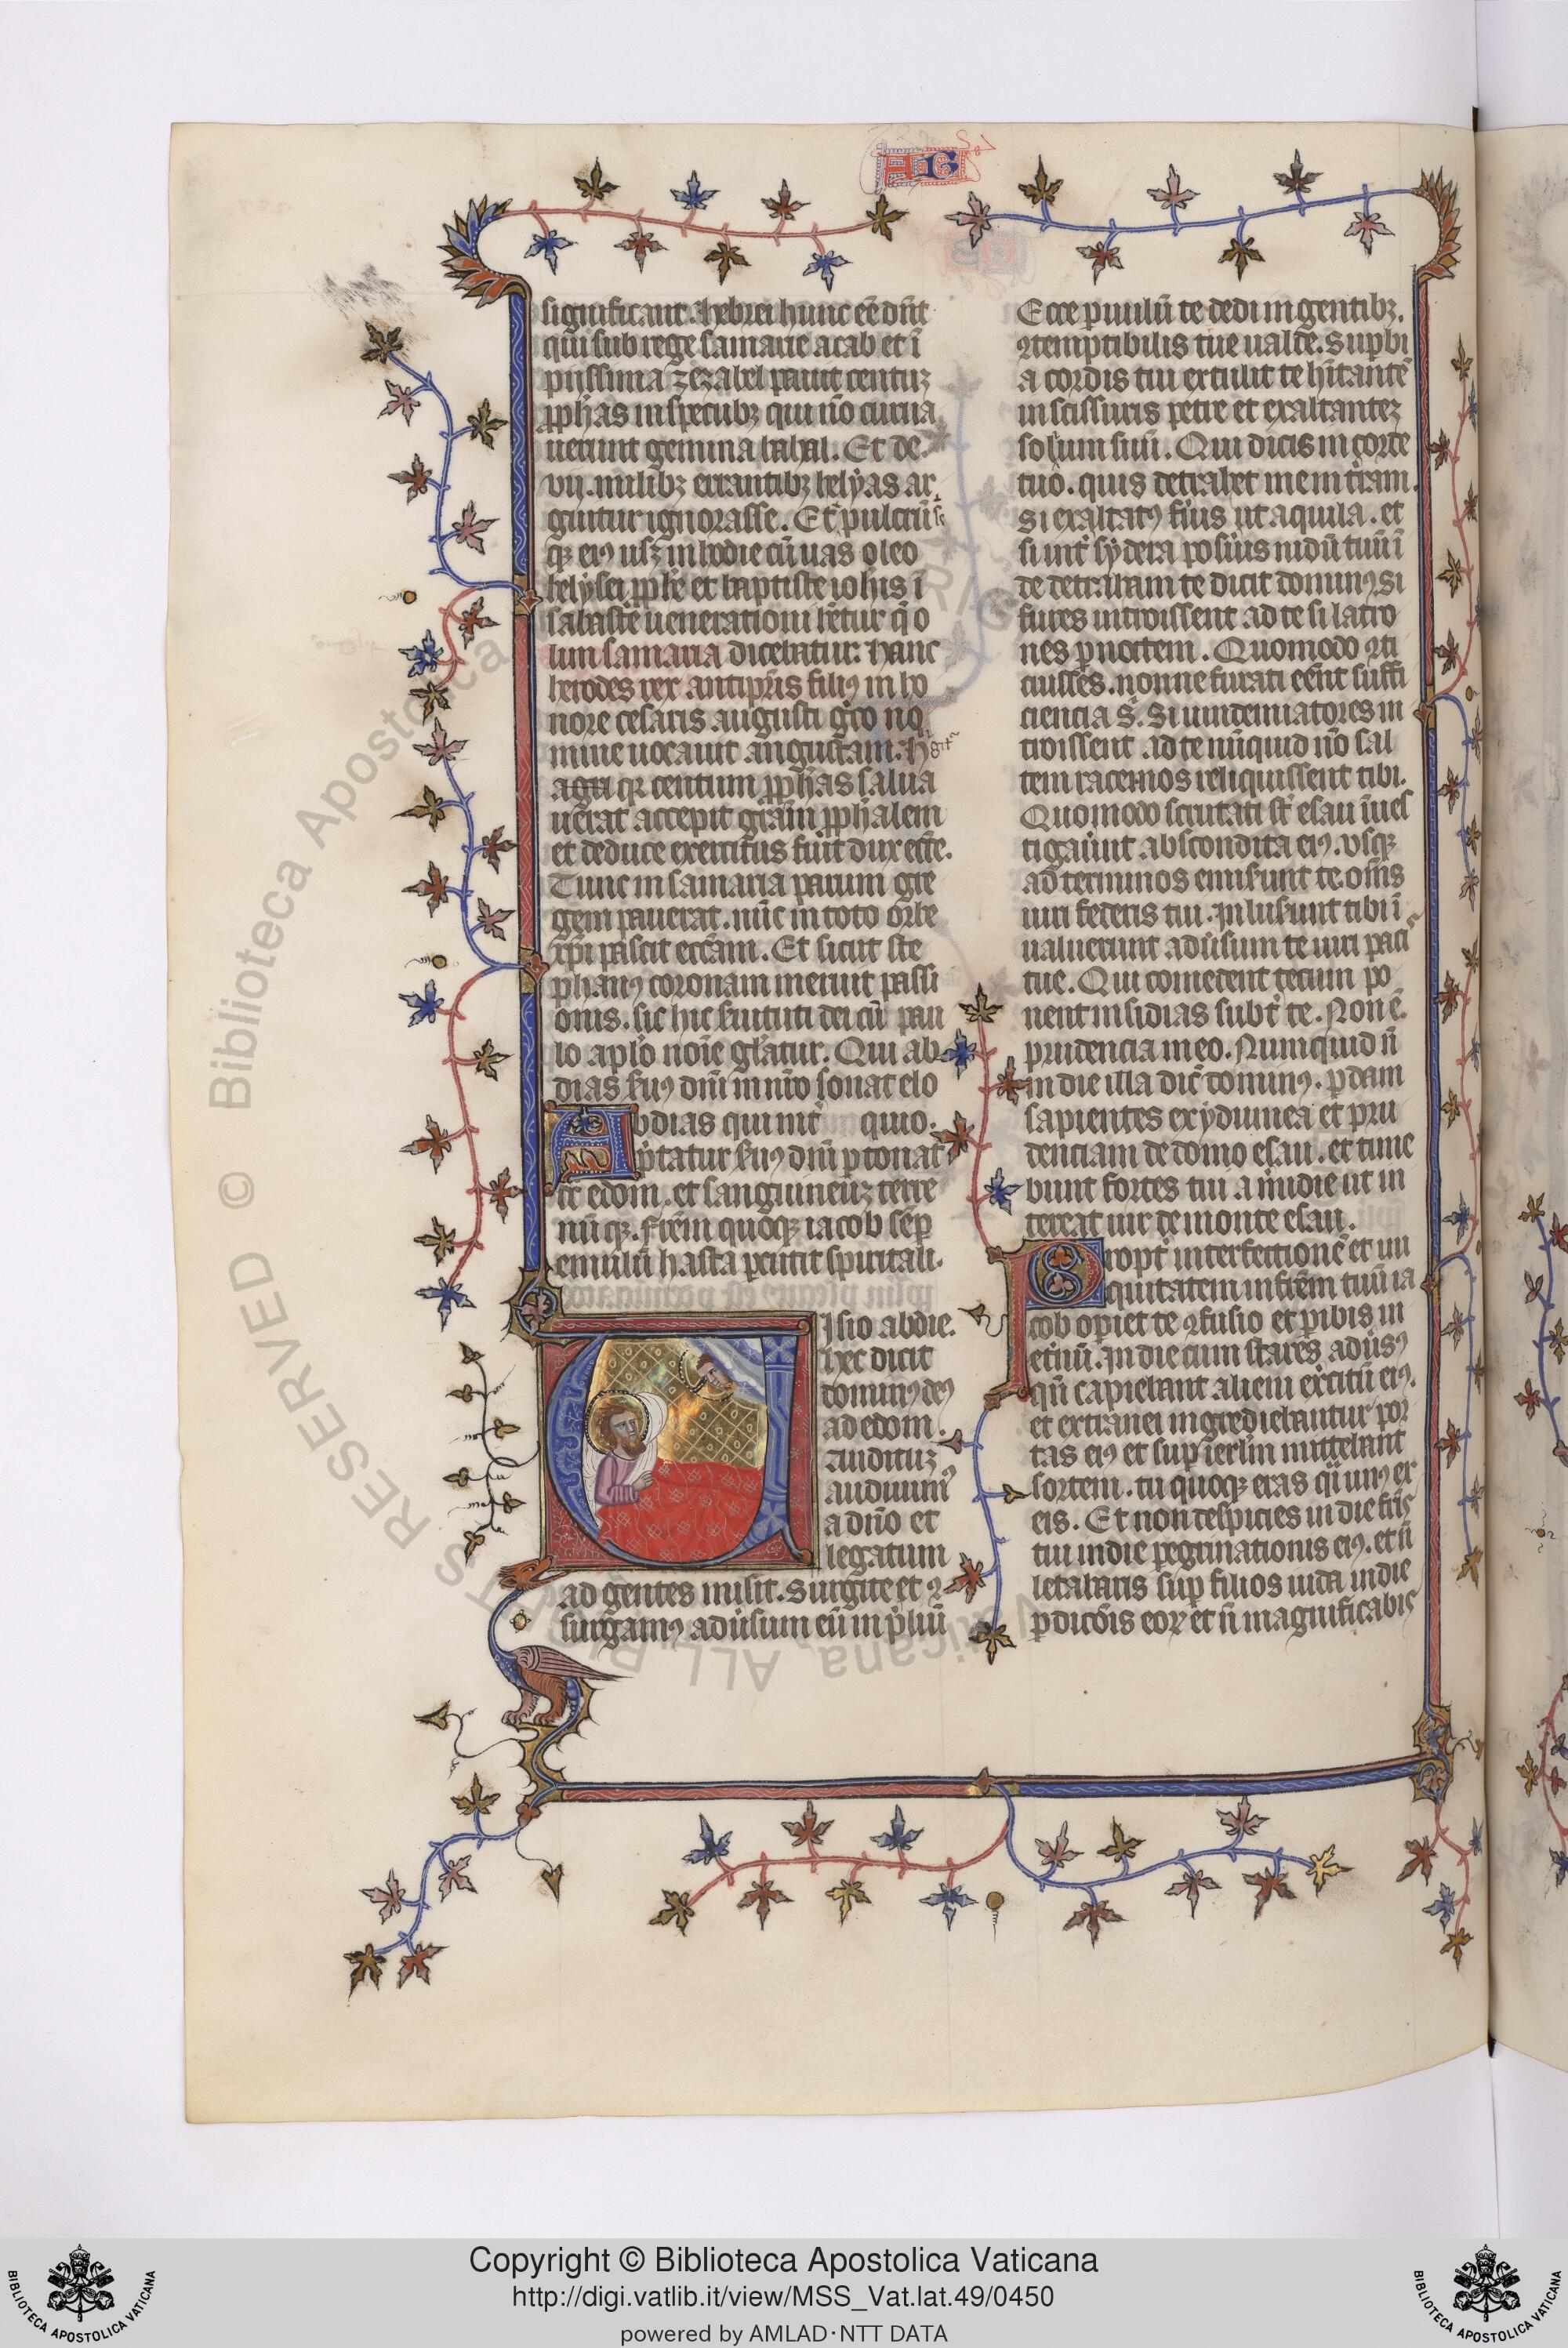 AG
significant. hebrei hunc eē dn̄t
qui sub rege samarie acab et ī
pijssima zezabel pauit centuꝫ
ꝓphās in specubꝫ qui nō curua
uerunt genu ina bahal. Et de
vij. milibꝫ errantibꝫ helyas ar
guitur ignorasse. Et pulcrū se
qꝫ eiꝰ usqꝫ in hodie cū uas oleo
helysei ꝓphe et baptiste iohis ī
sabaste ueneratioui hētur q̄ o
lim samaria dicebatur. hanc
herodes rex antipris filiꝰ in ho
nore cesaris augusti gͨco no
mine uocauit augustam. h̄ igit̄
agit qꝛ centum ꝓphās salua
uerat accepit grām ꝓphalem
et de duce exercitus fuit dux ecc̄e.
Tunc in samaria paruum gre
gem pauerat. nūc in toto orbe
xp̄i pascit ecc̄am. Et sicut ste
phanꝰ coronam meruit passi
onis. sic hic seruituti dei cū pau
lo aplo noīe gl̄atur. Qui ab
dias seruꝰ dn̄i in nr̄o sonat elo
Abdias qui int̄ quio.
p̄tatur seruꝰ dn̄i personat
tͨ edom. et sanguineuꝫ terre
nūqꝫ. frēm quoqꝫ iacob sēp
emulū hasta ꝑcutit spiritali.
Uisio abdie.
hec dicit
dominꝰ deꝰ
ad edom.
Audituꝫ
audiuimꝰ
a dn̄o et
legatum
ad gentes misit. Surgite et ꝯ
surgamꝰ adūsum eū in p̄liū
Ecce paruulū te dedi in gentibꝫ.
ꝯtemptibilis tu es ualde. Supbi
a cordis tui extulit te hītantē
in scissuris petre et exaltanteꝫ
solium suū. Qui dicis in corde
tuo. quis detrahet me in trām.
Si exaltatꝰ fūis ut aquila. et
si int̄ sydera posūis nidū tuū ī
de detraham te dicit dominꝰ. Si
fures introissent ad te si latro
nes ꝑ noctem. Quomodo ꝯti
cuisses. nonne furati eēnt suffi
ciencia s̄. Si uindemiatores in
troissent ad te nūquid nō sal
tem racemos reliquissent tibi.
Quomodo scrutati st̄ esau īues
tigauūnt abscondita eiꝰ. vsqꝫ
ad terminos emisūnt te. om̄s
uiri federis tui. Inlusūnt tibi ī
ualuerunt adūsum te uiri paci
tue. Qui comedent tecum po
nent insidias subt̄ te. Non ē
prudencia in eo. Numquid n̄
in die illa dic̄ dominꝰ. ꝑdam
sapientes ex ydumea et pru
denciam de domo esau. et time
bunt fortes tui a m̄idie ut in
tereat uir de monte esau.
Propt̄ interfectionē et ini
quitatem in frēm tuū ia
cob oꝑiet te ꝯfusio et ꝑibis in
etn̄ū. In die cum stares adūsꝰ
qn̄ capiebant alieni excitū eiꝰ.
et extranei ingrediebantur por
tas eiꝰ et sup ierlm mittebant
sortem. tu quoqꝫ eras qi unꝰ ex
eis. Et non despicies in die fr̄is
tui in die ꝑegrinationis eiꝰ. et n̄
letabaris sup filios iuda in die
ꝑdicōis eoꝝ et n̄ magnificabis
© Biblioteca Apostolica Vaticana, ALL RIGHTS RESERVED
Copyright © Biblioteca Apostolica Vaticana
http://digi.vatlib.it/view/MSS_Vat.lat.49/0450
powered by AMLAD·NTT DATA
BIBLIOTECA APOSTOLICA VATICANA
BIBLIOTECA APOSTOLICA VATICANA